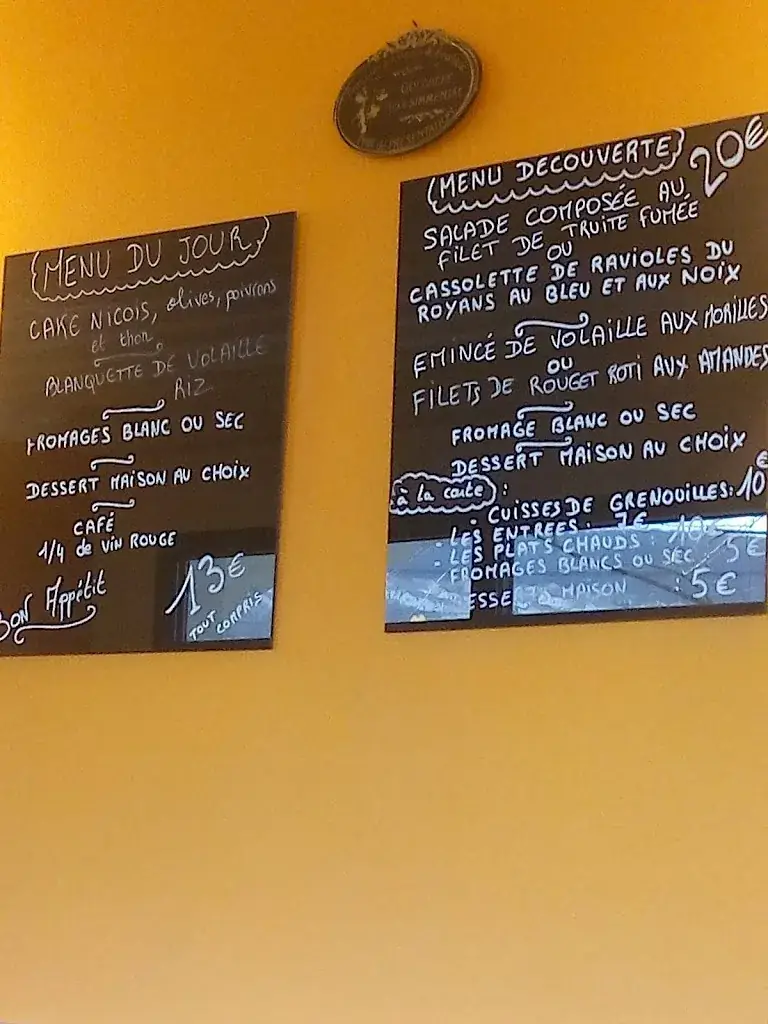 MENU DU JOUR
CAKE NICOIS, olives, poivrons
et thon
BLANQUETTE DE VOLAILLE
RIZ
FROMAGES BLANC OU SEC
DESSERT MAISON AU CHOIX
CAFÉ
1/4 de VIN ROUGE
BON Appétit
13€
TOUT COMPRIS
MENU DECOUVERTE 20€
SALADE COMPOSÉE AU
FILET DE TRUITE FUMÉE
OU
CASSOLETTE DE RAVIOLES DU
ROYANS AU BLEU ET AUX NOIX
EMINCÉ DE VOLAILLE AUX MORILLES
OU
FILETS DE ROUGET ROTI AUX AMANDES
FROMAGE BLANC OU SEC
DESSERT MAISON AU CHOIX
à la carte :
- CUISSES DE GRENOUILLES: 10€
- LES ENTREES: 7€
- LES PLATS CHAUDS: 10€
- FROMAGES BLANCS OU SEC 3€
DESSERTS MAISON : 5€